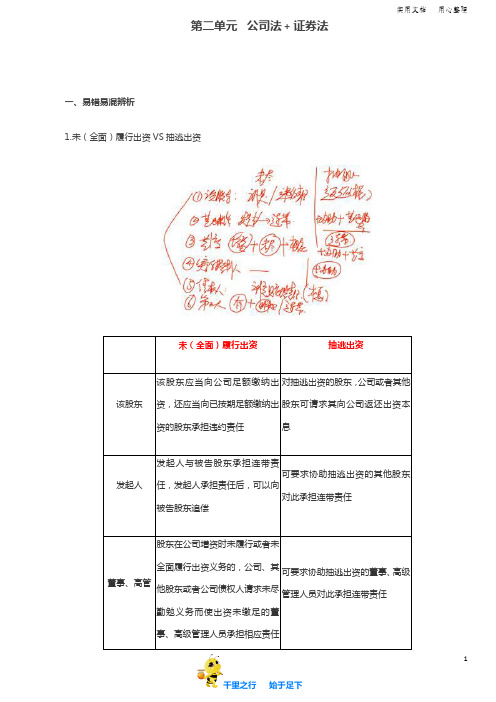 实用文档 用心整理
第二单元 公司法+证券法
一、易错易混辨析
1.未（全面）履行出资VS抽逃出资
未尽
抽逃
①该股东：
③董高
④实际控制人
⑤债权人：
⑥第三人
未（全面）履行出资
抽逃出资
该股东
该股东应当向公司足额缴纳出
资，还应当向已按期足额缴纳出
资的股东承担违约责任
对抽逃出资的股东，公司或者其他
股东可请求其向公司返还出资本
息
发起人
发起人与被告股东承担连带责
任，发起人承担责任后，可以向
被告股东追偿
可要求协助抽逃出资的其他股东
对此承担连带责任
董事、高管
股东在公司增资时未履行或者未
全面履行出资义务的，公司、其
他股东或者公司债权人请求未尽
勤勉义务而使出资未缴足的董
事、高级管理人员承担相应责任
可要求协助抽逃出资的董事、高级
管理人员对此承担连带责任
1
千里之行 始于足下